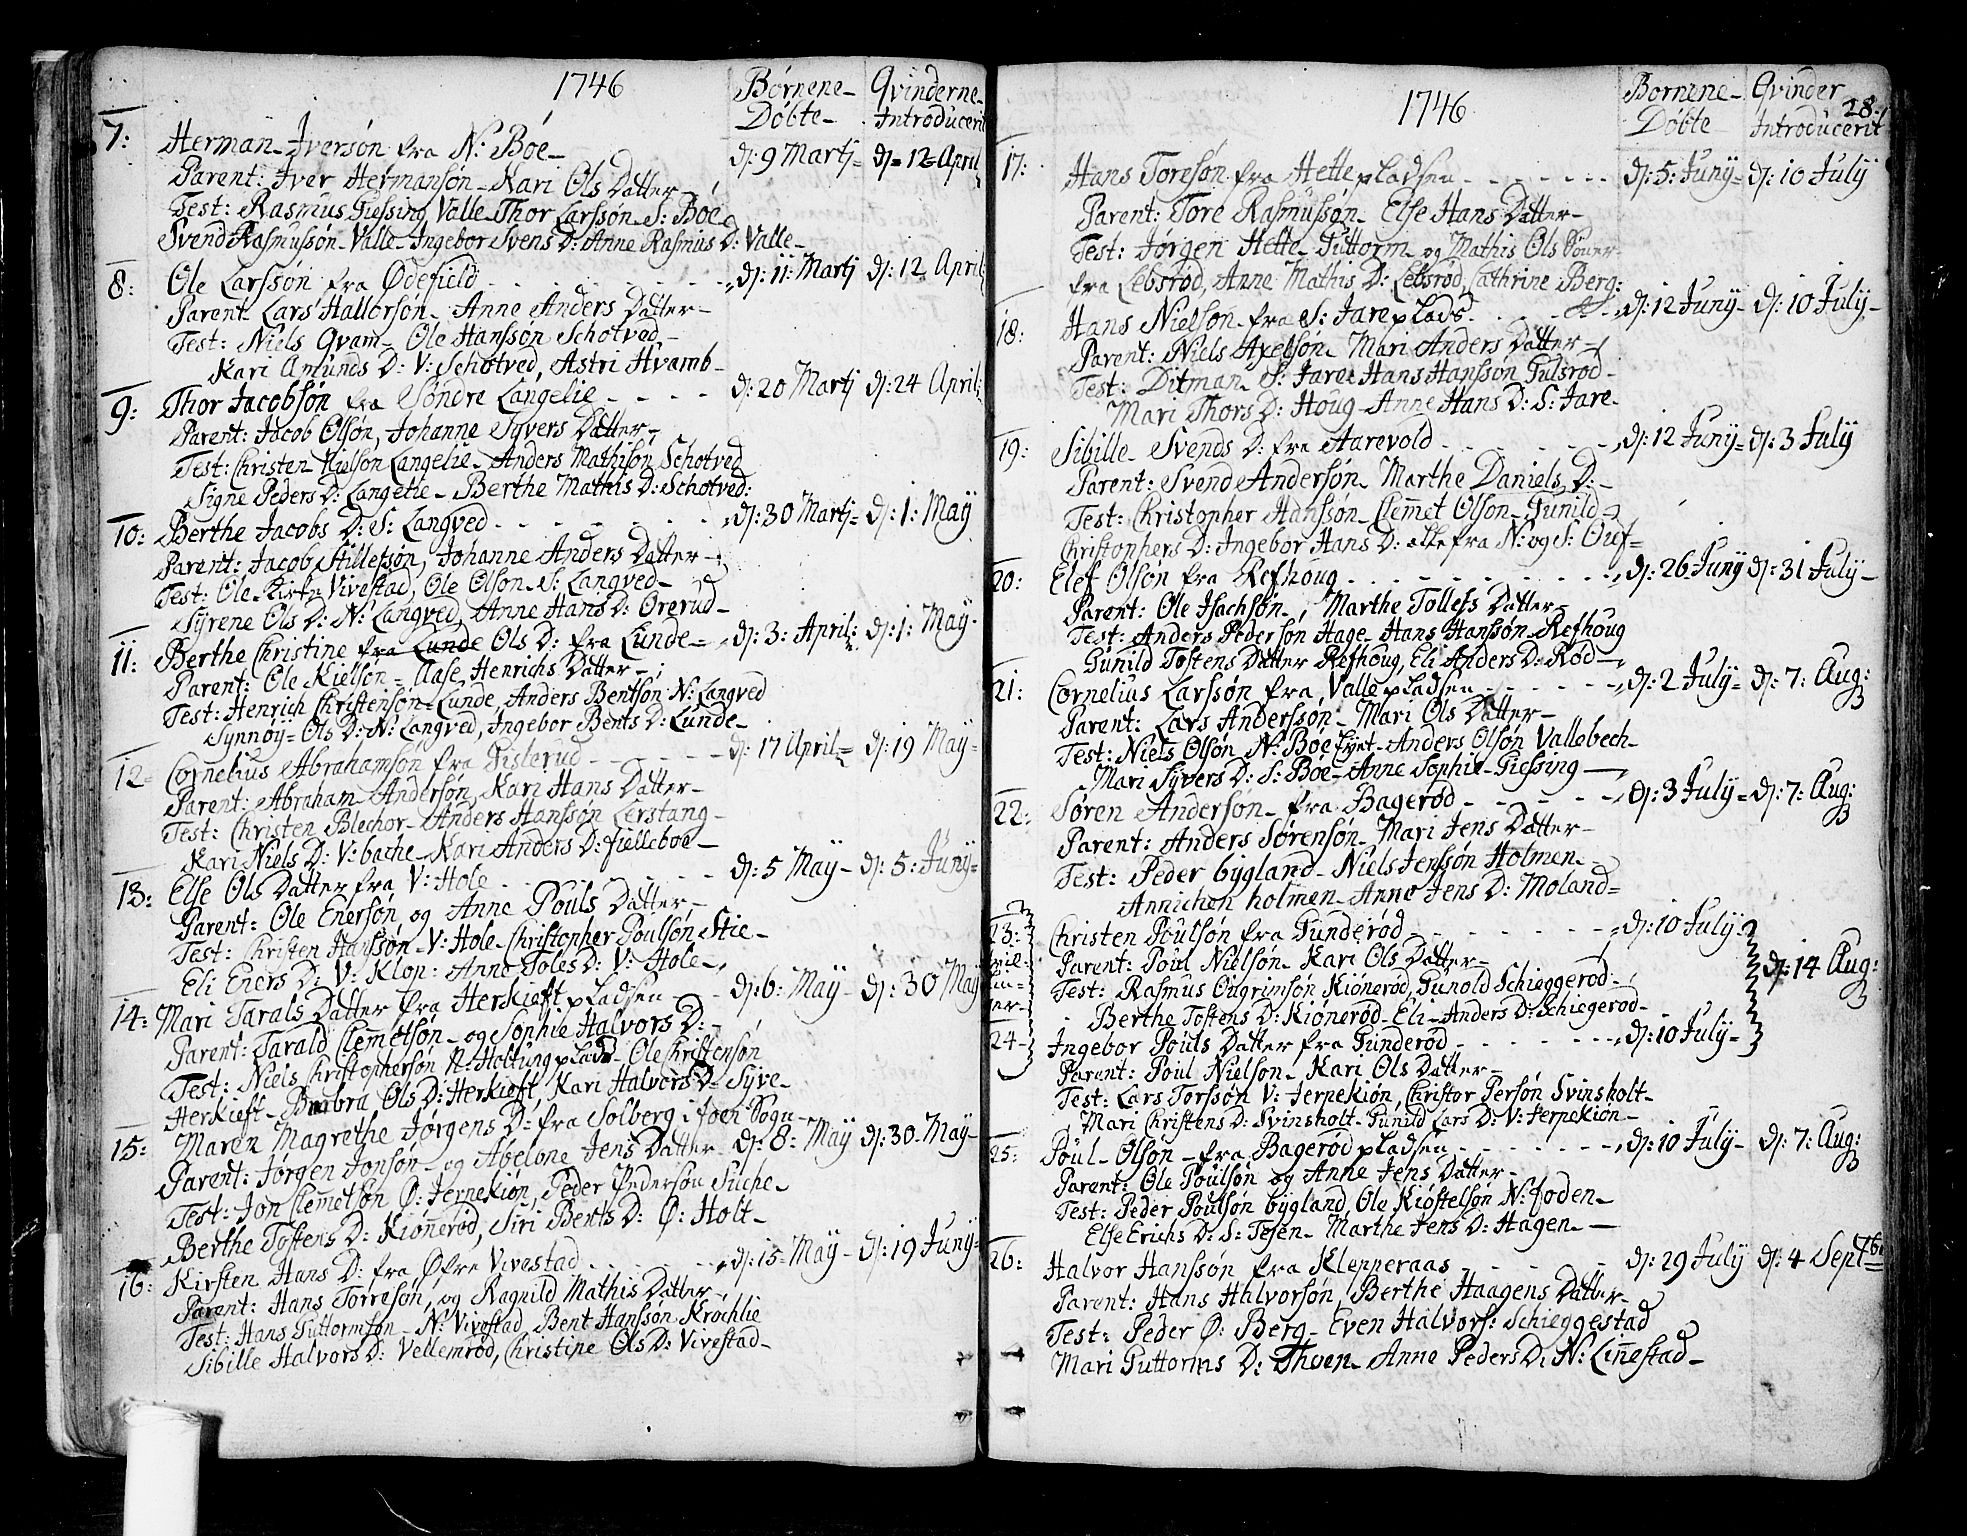 1746
Børnene Døbte
Qvinderne Introducerit
7: Herman Iversøn fra N: Bøe dj: 9 Martj dj 12 April
Parent: Iver Hermansøn Kari Ols Datter
Test: Rasmus Giessing Valle Thor Larssøn S: Bøe
Svend Rasmussøn Valle Ingebor Svens D: Anne Rasmus D: Valle
8: Ole Larssøn fra Ødefield dj: 11: Martj dj: 12 April
Parent Lars Hallorsøn Anne Anders Datter
Test: Niels Qvam Ole Hansson Schotved
Kari Amunds D: V: Schotved, Astri Hvamb
9: Thor Jacobsøn fra Søndre Langelie dj: 20 Martj dj: 24 April:
Parent: Jacob Olsøn, Johanne Syvers Datter
Test: Christen Kielson Langelie Anders Mathison Schotved
Signe Peders D: Langelie Berthe Mathis D: Schotved:
10: Berthe Jacobs D: S: Langved dj: 30 Martj dj: 1: May
Parent: Jacob Stillefsøn, Johanne Anders Datter
Test: Ole Kirke Vivestad, Ole Olson S: Langved
Syrene Ols D: N: Langved, Anne Hans D: Orerud
11: Berthe Christine fra Lunde Ols D: fra Lunde dj: 3: April: dj: 1: May
Parent: Ole Kielsøn Aase Henrichs Datter
Test: Henrich Christensøn Lunde, Anders Bentsøn N: Langved
Synnøy Ols D: N: Langved, Ingebor Bents D: Lunde
12 Cornelius Abrahamsøn fra Gisterud dj: 17 April dj: 19 May
Parent: Abraham Andersøn, Kari Hans Datter
Test: Christen Blechor Anders Hanssøn Lerstang
Kari Niels D: V: bache Kari Anders D: fielleboe
13: Else Ols Datter fra V: Hole dj: 5 May dj: 5: Juny
Parent: Ole Enersøn og Anne Pouls Datter
Test: Christen Hanssøn V: Hole Christopher Poulsøn Stie
Eli Eners D: V: Klop: Anne Toles D: V: Hole
14: Mari Tarals Datter fra Herkieft pladsen dj: 6: May dj: 30 May
Parent: Tarald Clemetsøn og Sophie Halvors D:
Test: Niels Christophersøn N: Haltung plads Ole Christensøn
Herkieft Barbra Ols D: Herkieft, Kari Halvors D: Syve
15: Maren Magrethe Jørgens D: fra Solberg i foen Sogn dj: 8: May dj: 30 May
Parent: Jørgen Jonsøn og Abelone Jens Datter
Test: Jon Clemetsøn Ø: Jernekiøn, Peder Pedersøn Suche
Berthe Tostens D: Kiønnerød, Siri Berts D: Ø: Holt
16: Kirsten Hans D: fra Øfre Vivestad dj: 15 May dj: 19 Juny
Parent: Hans Torresøn, og Ragnild Mathis Datter
Test: Hans Guttormsøn N: Vivestad Bent Hanssøn Krochlie
Sibille Halvors D: Vellemrød, Christine Ols D: Vivestad
1746
Børnene Døbte
Qvinder Introducerit
28:
17: Hans Toresøn fra Hette pladsen dj: 5: Juny dj: 10 July
Parent: Tore Rasmussøn Else Hans Datter
Test: Jørgen Hette Guttorm og Mathis Ols Søner
fra Lebsrød, Anne Mathis D: Lebsrød, Cathrine Berg:
18: Hans Nielsøn fra S: Jare plads dj: 12 Juny dj: 10 July
Parent: Niels Axelsøn Mari Anders Datter
Test: Ditman S: Jare Hans Hanssøn Gulsrod
Mari Thors D: Houg Anne Hans D: S: Jare
19: Sibille Svends D: fra Aarevold dj: 12 Juny dj: 3 July
Parent: Svend Andersøn Marthe Daniels D:
Test: Christopher Hanssøn Clemet Olson Gunild
Christophers D: Ingebor Hans D: alle fra N: og S: Oief
20: Elef Olsøn fra Refhoug dj: 26 Juny dj: 31 July
Parent: Ole Isachsøn, Marthe Tollefs Datter
Test: Anders Pedersøn Hage Hans Hanssøn Refhoug
Gunild Tostens Datter Refhoug, Eli Anders D: Rød
21: Cornelius Larssøn fra Valle pladsen dj: 2 July dj: 7: Aug:
Parent: Lars Anderssøn Mari Ols Datter
Test: Niels Olsøn N: Bøe Eyet Anders Olsøn Vallebech
Mari Syvers D: S: Bøe Anne Sophie Giessing
22: Søren Andersøn fra Bagerød dj: 3 July dj: 7: Aug:
Parent: Anders Sørensøn Mari Jens Datter
Test: Peder bygland Niels Jenssøn Holmen
Annichen holmen Anne Jens D: Moland
23: Christen Poulsøn fra Gunderød dj: 10 July
Parent: Poul Nielsøn Kari Ols Datter dj: 14 Aug:
Test: Rasmus Ougrimsøn Kiønerød, Gunold Schieggerød
Berthe Tostens D: Kiønerød Eli Anders D: Schiegerød
24 Ingebor Pouls Datter fra Gunderød dj: 10 July
Parent: Poul Nielson Kari Ols Datter
Test: Lars Torssøn V: Jernekiøn, Christor Persøn Svinsholt
Mari Christens D: Svinsholt Gunild Lars D: V: Jernekiøn
25: Poul Olson fra Bagerød pladsen dj: 10 July dj: 7: Aug:
Parent: Ole Poulsøn og Anne Jens Datter
Test: Peder Poulsøn bygland, Ole Kiøstelsøn N: foden
Else Erichs D: S: Tesen Marthe Jens D: Hagen
26: Halvor Hanssøn fra Klepperaas dj: 29 July dj: 4 Septbr
Parent: Hans Halvorsøn, Berthe Haagens Datter
Test: Peder Ø: Berg Even Halvors: Schieggestad
Mari Guttorms D: Thoen Anne Peders D: N: Linnestad